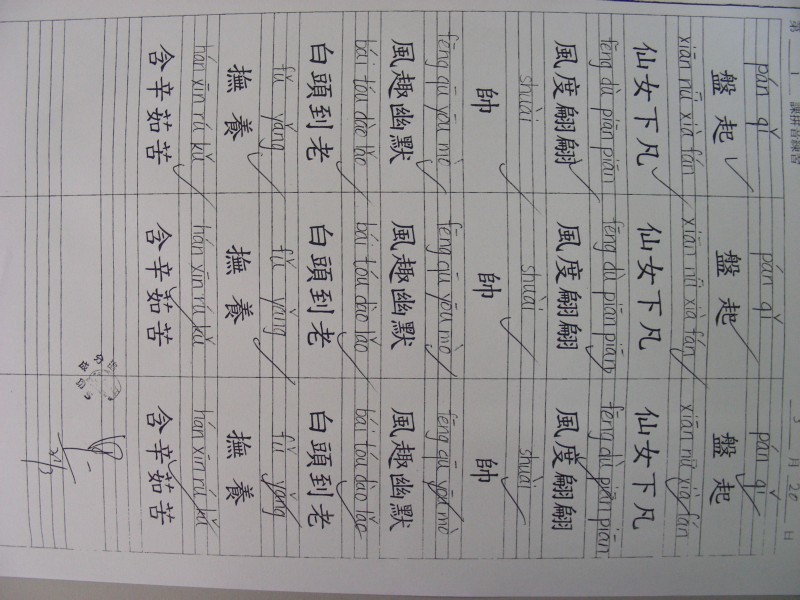 第 1 課拼音練習 3 月 20 日
pán qǐ pán qǐ pán qǐ
盤起 盤起 盤起
xiān nǚ xià fán xiān nǚ xià fán xiān nǚ xià fán
仙女下凡 仙女下凡 仙女下凡
fēng dù piān piān fēng dù piān piān fēng dù piān piān
風度翩翩 風度翩翩 風度翩翩
shuài shuài shuài
帥 帥 帥
fēng qū yōu mò fēng qū yōu mò fēng qū yōu mò
風趣幽默 風趣幽默 風趣幽默
bái tóu dào lǎo bái tóu dào lǎo bái tóu dào lǎo
白頭到老 白頭到老 白頭到老
fǔ yǎng fǔ yǎng fǔ yǎng
撫養 撫養 撫養
hán xīn rú kǔ hán xīn rú kǔ hán xīn rú kǔ
含辛茹苦 含辛茹苦 含辛茹苦